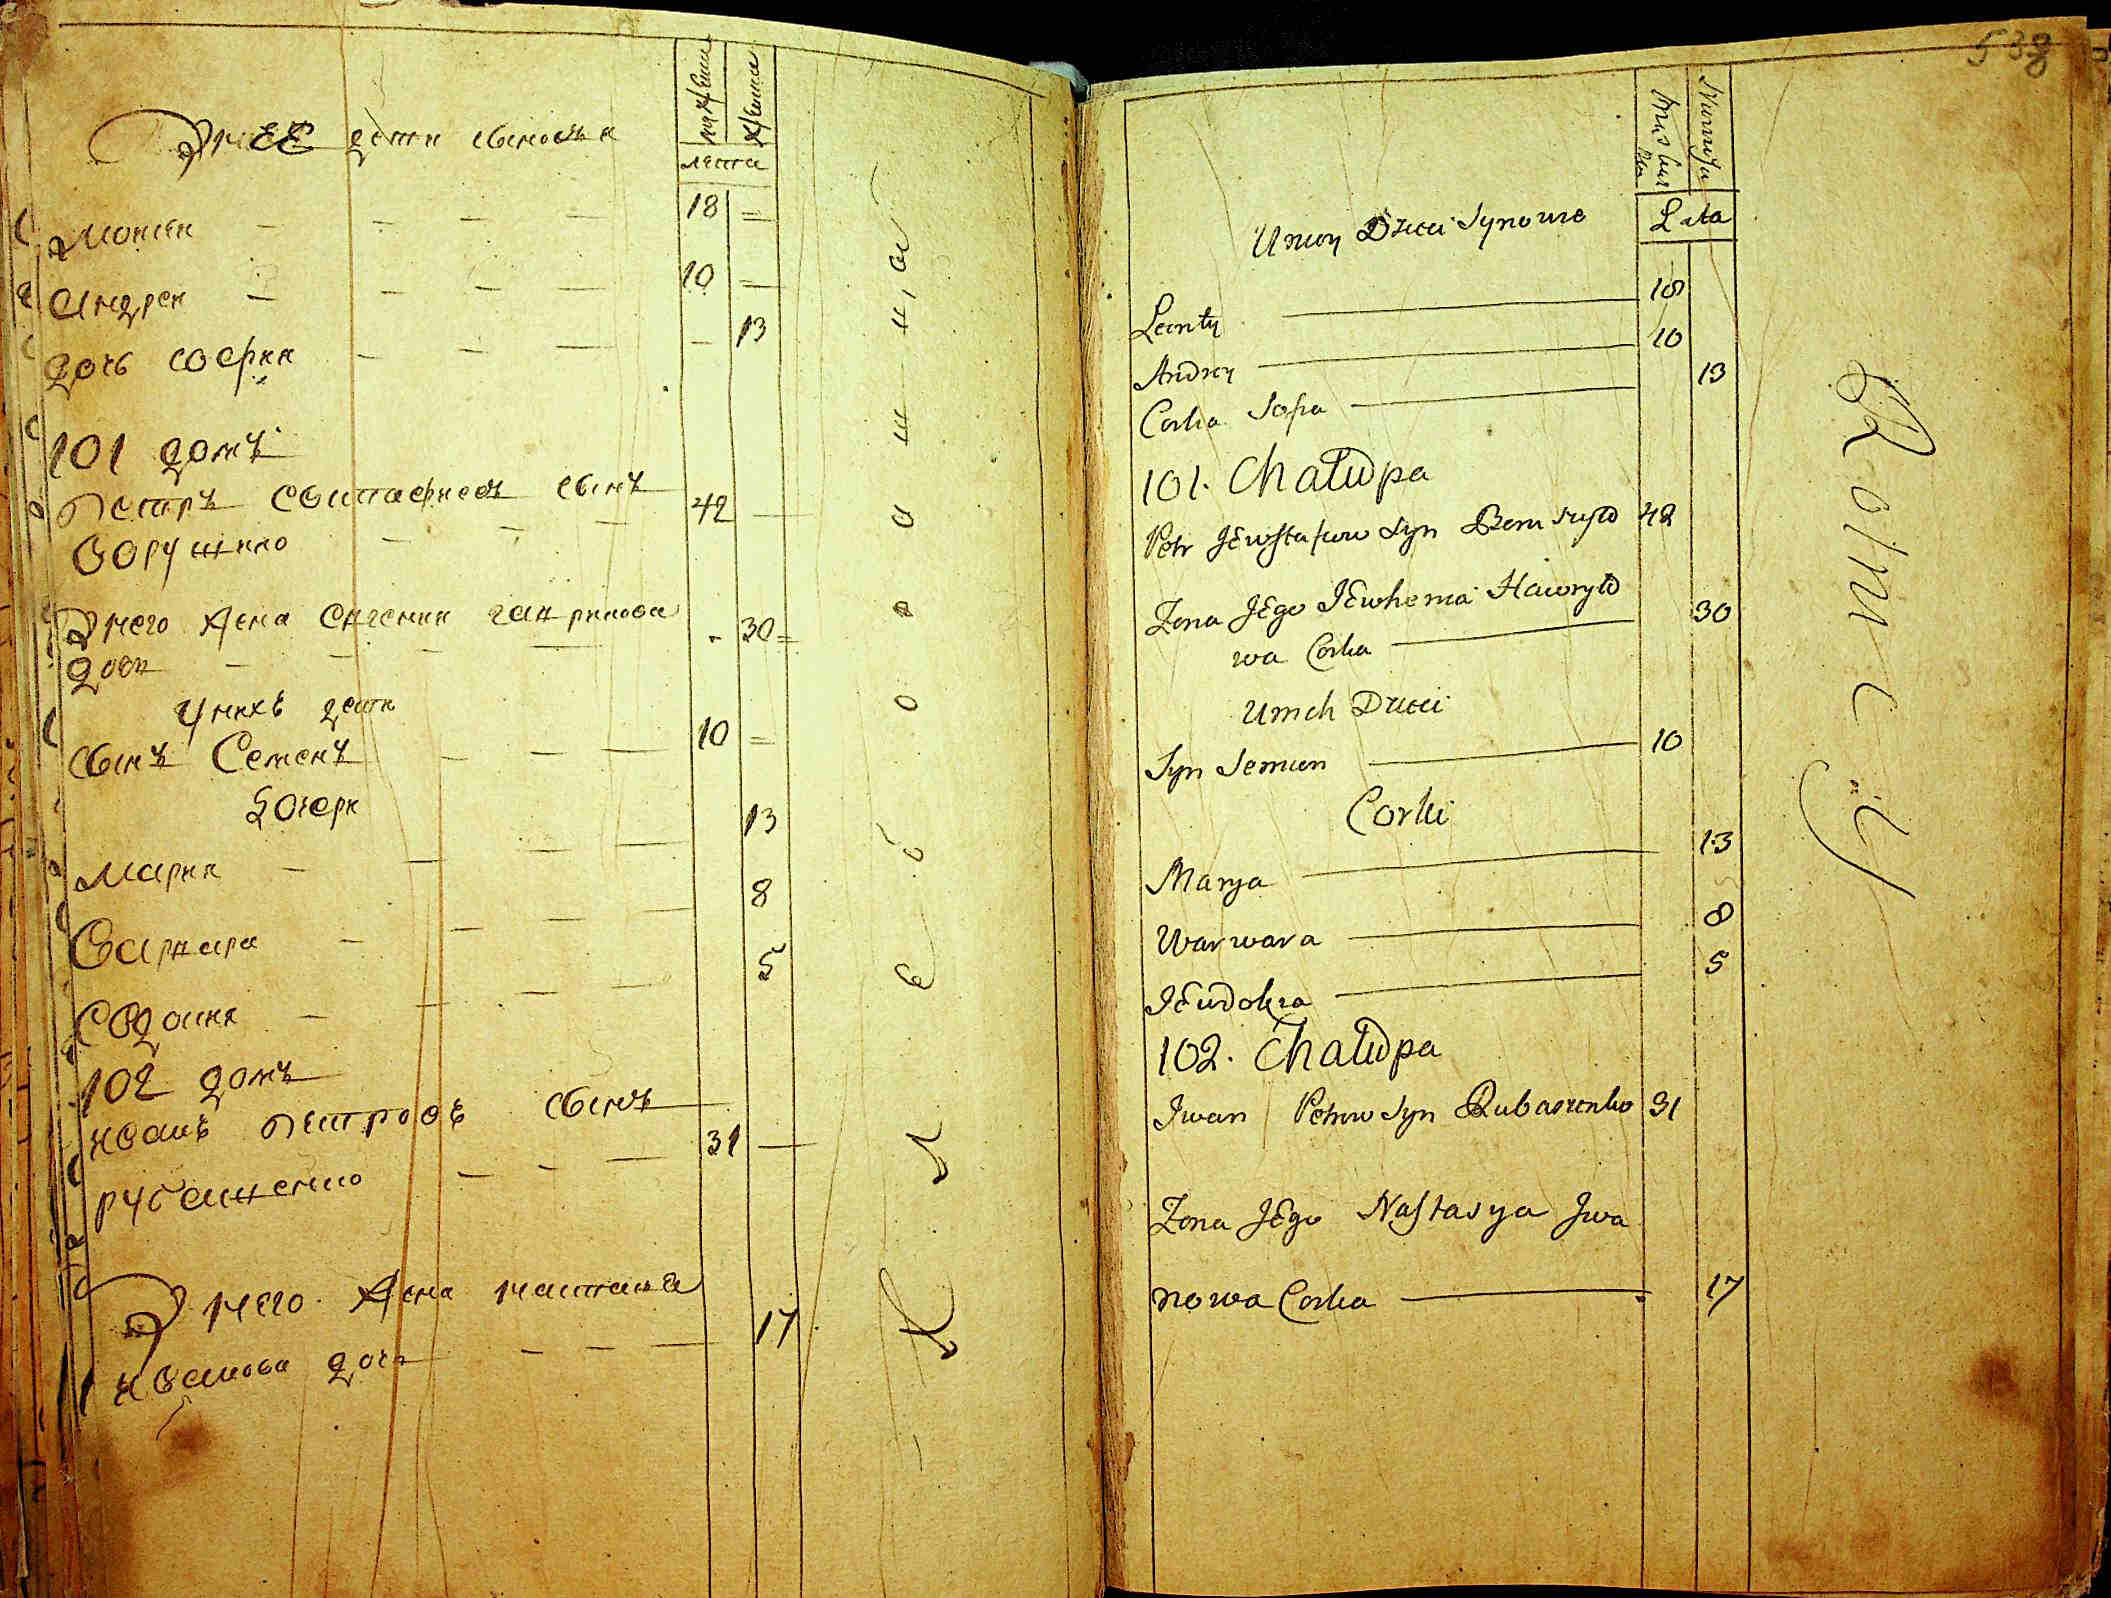 мужеска
женска
лета
Унеё дети сыновья
18 =
Андрей — — — — 10 =
дочь софия — — — — 13
101 домъ
Петръ Евстафиевъ сынъ 42 —
Унего жена Евгения гавриловa
дочь — — — — 30 =
Унихъ дети
сынъ Семенъ — — — 10 =
дочери
Мария — — — — 13
Варвара — — — — 8
Евдокия — — — — 5
102 домъ
иванъ петровъ сынъ
рубащенко — — — 31 —
Унего жена настасья
иванова дочь — — — 17
538
Lata
Uniey Dzieci Synowie
Leonty 18
Andrey 10
Corka Sofia 13
101. Chałupa
Petr Jewstafiew Syn 42
Zona Jego Jewhenia Hawryło
wa Corka 30
Unich Dzieci
Syn Semion 10
Corki
Marya 13
Warwara 8
Jewdokia 5
102. Chałupa
Jwan Petrow Syn Rubaszenko 31
Zona Jego Nastasya Jwa
nowa Corka 17
Rolnicy